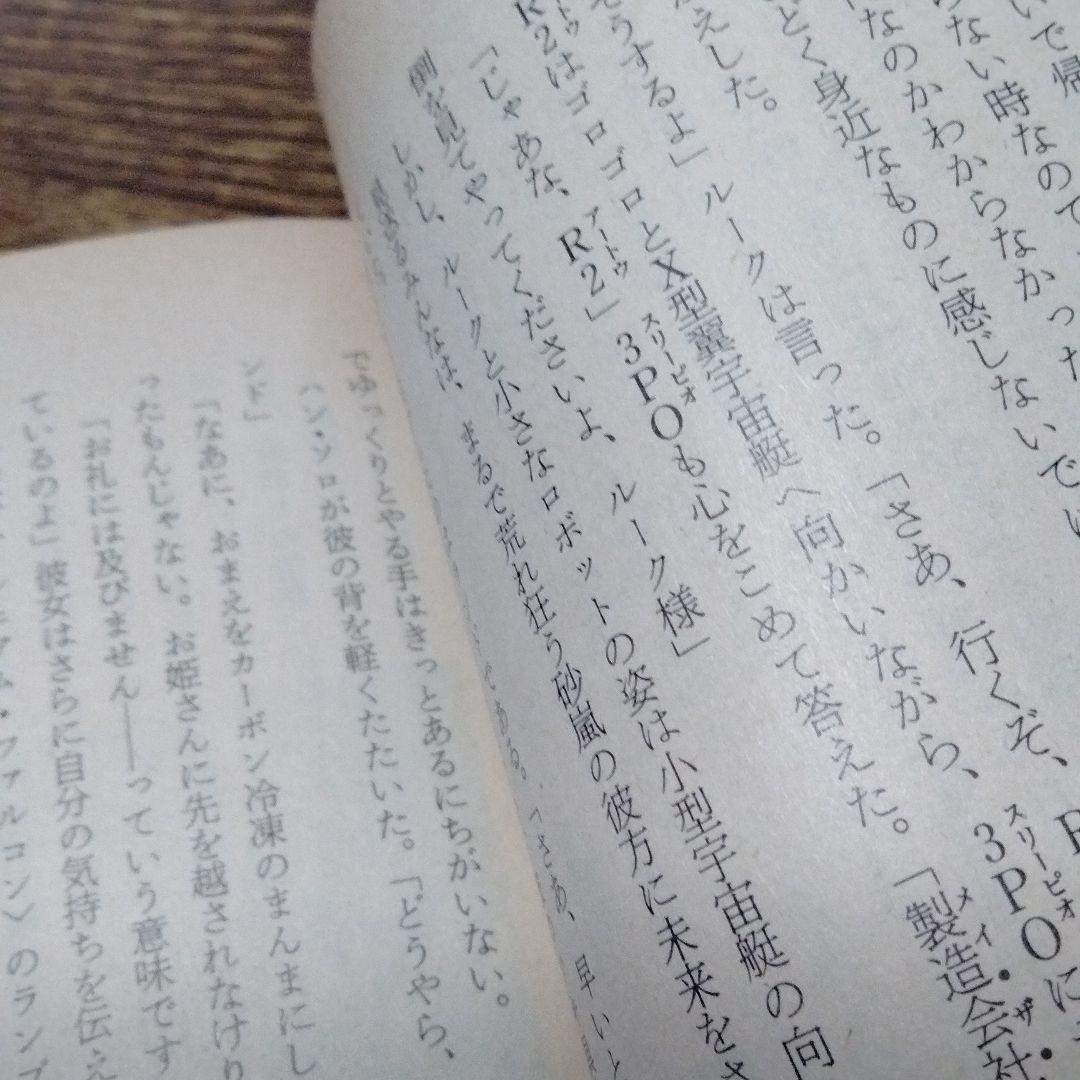 いで帰
ない時なので
なのかわからなかった
とく身近なものに感じないでは
3POに
スリーピオ
えした。
そうするよ」ルークは言った。「さあ、行くぞ、R
R2はゴロゴロとX型翼宇宙艇へ向かいながら、
アートゥ
「製造会社
メイ・ザ・
「じゃあな、R2」3POも心をこめて答えた。
アートゥ
スリーピオ
てやってくださいよ、ルーク様」
しかし、ルークと小さなロボットの姿は小型宇宙艇の向
まるで荒れ狂う砂嵐の彼方に未来を
である。「さあ、早いと
でゆっくりとやる手はきっとあるにちがいない。
ハン・ソロが彼の背を軽くたたいた。「どうやら、
ンド」
「なあに、おまえをカーボン冷凍のまんまにし
ったもんじゃない。お姫さんに先を越されなけり
「お礼には及びません――っていう意味です
ているのよ」彼女はさらに自分の気持ちを伝え
ム・ファルコン〉のランプ